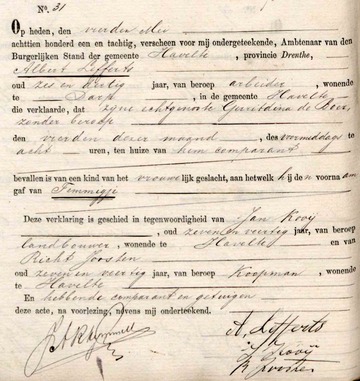 No. 31
Op heden, den vierden Mei
achttien honderd een en tachtig, verscheen voor mij ondergeteekende, Ambtenaar van den
Burgerlijken Stand der gemeente Havelte, provincie Drenthe,
Albert Lefferts
oud zes en dertig jaar, van beroep arbeider, wonende
te Darp, in de gemeente Havelte
die verklaarde, dat zijne echtgenote Geertdina de Boer,
zonder beroep
den vierden dezer maand, des voormiddags
acht uren, ten huize van hem comparant
bevallen is van een kind van het vrouwelijk geslacht, aan hetwelk hij den voornaam
gaf van Jemmigje
Deze verklaring is geschied in tegenwoordigheid van Jan Kooy
oud zeven en veertig jaar, van beroep
landbouwer, wonende te Havelte en van
Richt Joosten
oud zeven en veertig jaar, van beroep Koopman, wonende
te Havelte
En hebbende comparant en getuigen
deze acte, na voorlezing, nevens mij onderteekend.
A. Lefferts
J. Kooij
R Joosten